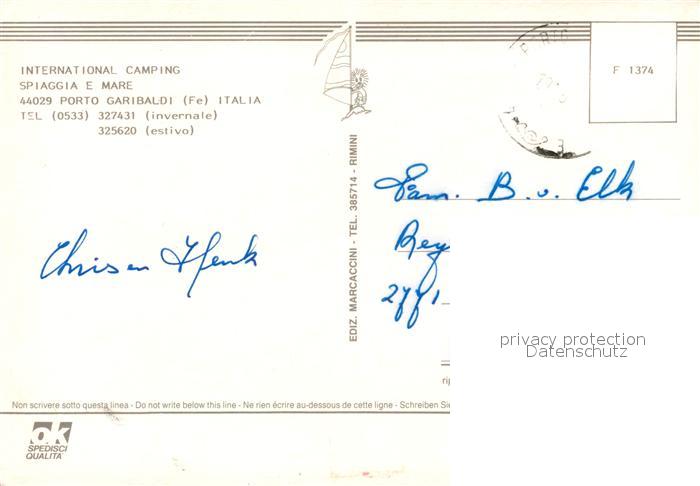 INTERNATIONAL CAMPING
SPIAGGIA E MARE
44029 PORTO GARIBALDI (Fe) ITALIA
TEL (0533) 327431 (invernale)
325620 (estivo)
F 1374
EDIZ. MARCACCINI - TEL. 385714 - RIMINI
Fam. B. v. Elk
Rey
2771
Chris en Henk
privacy protection
Datenschutz
Non scrivere sotto questa linea - Do not write below this line - Ne rien écrire au-dessous de cette ligne - Schreiben Sie
ok
SPEDISCI
QUALITA'